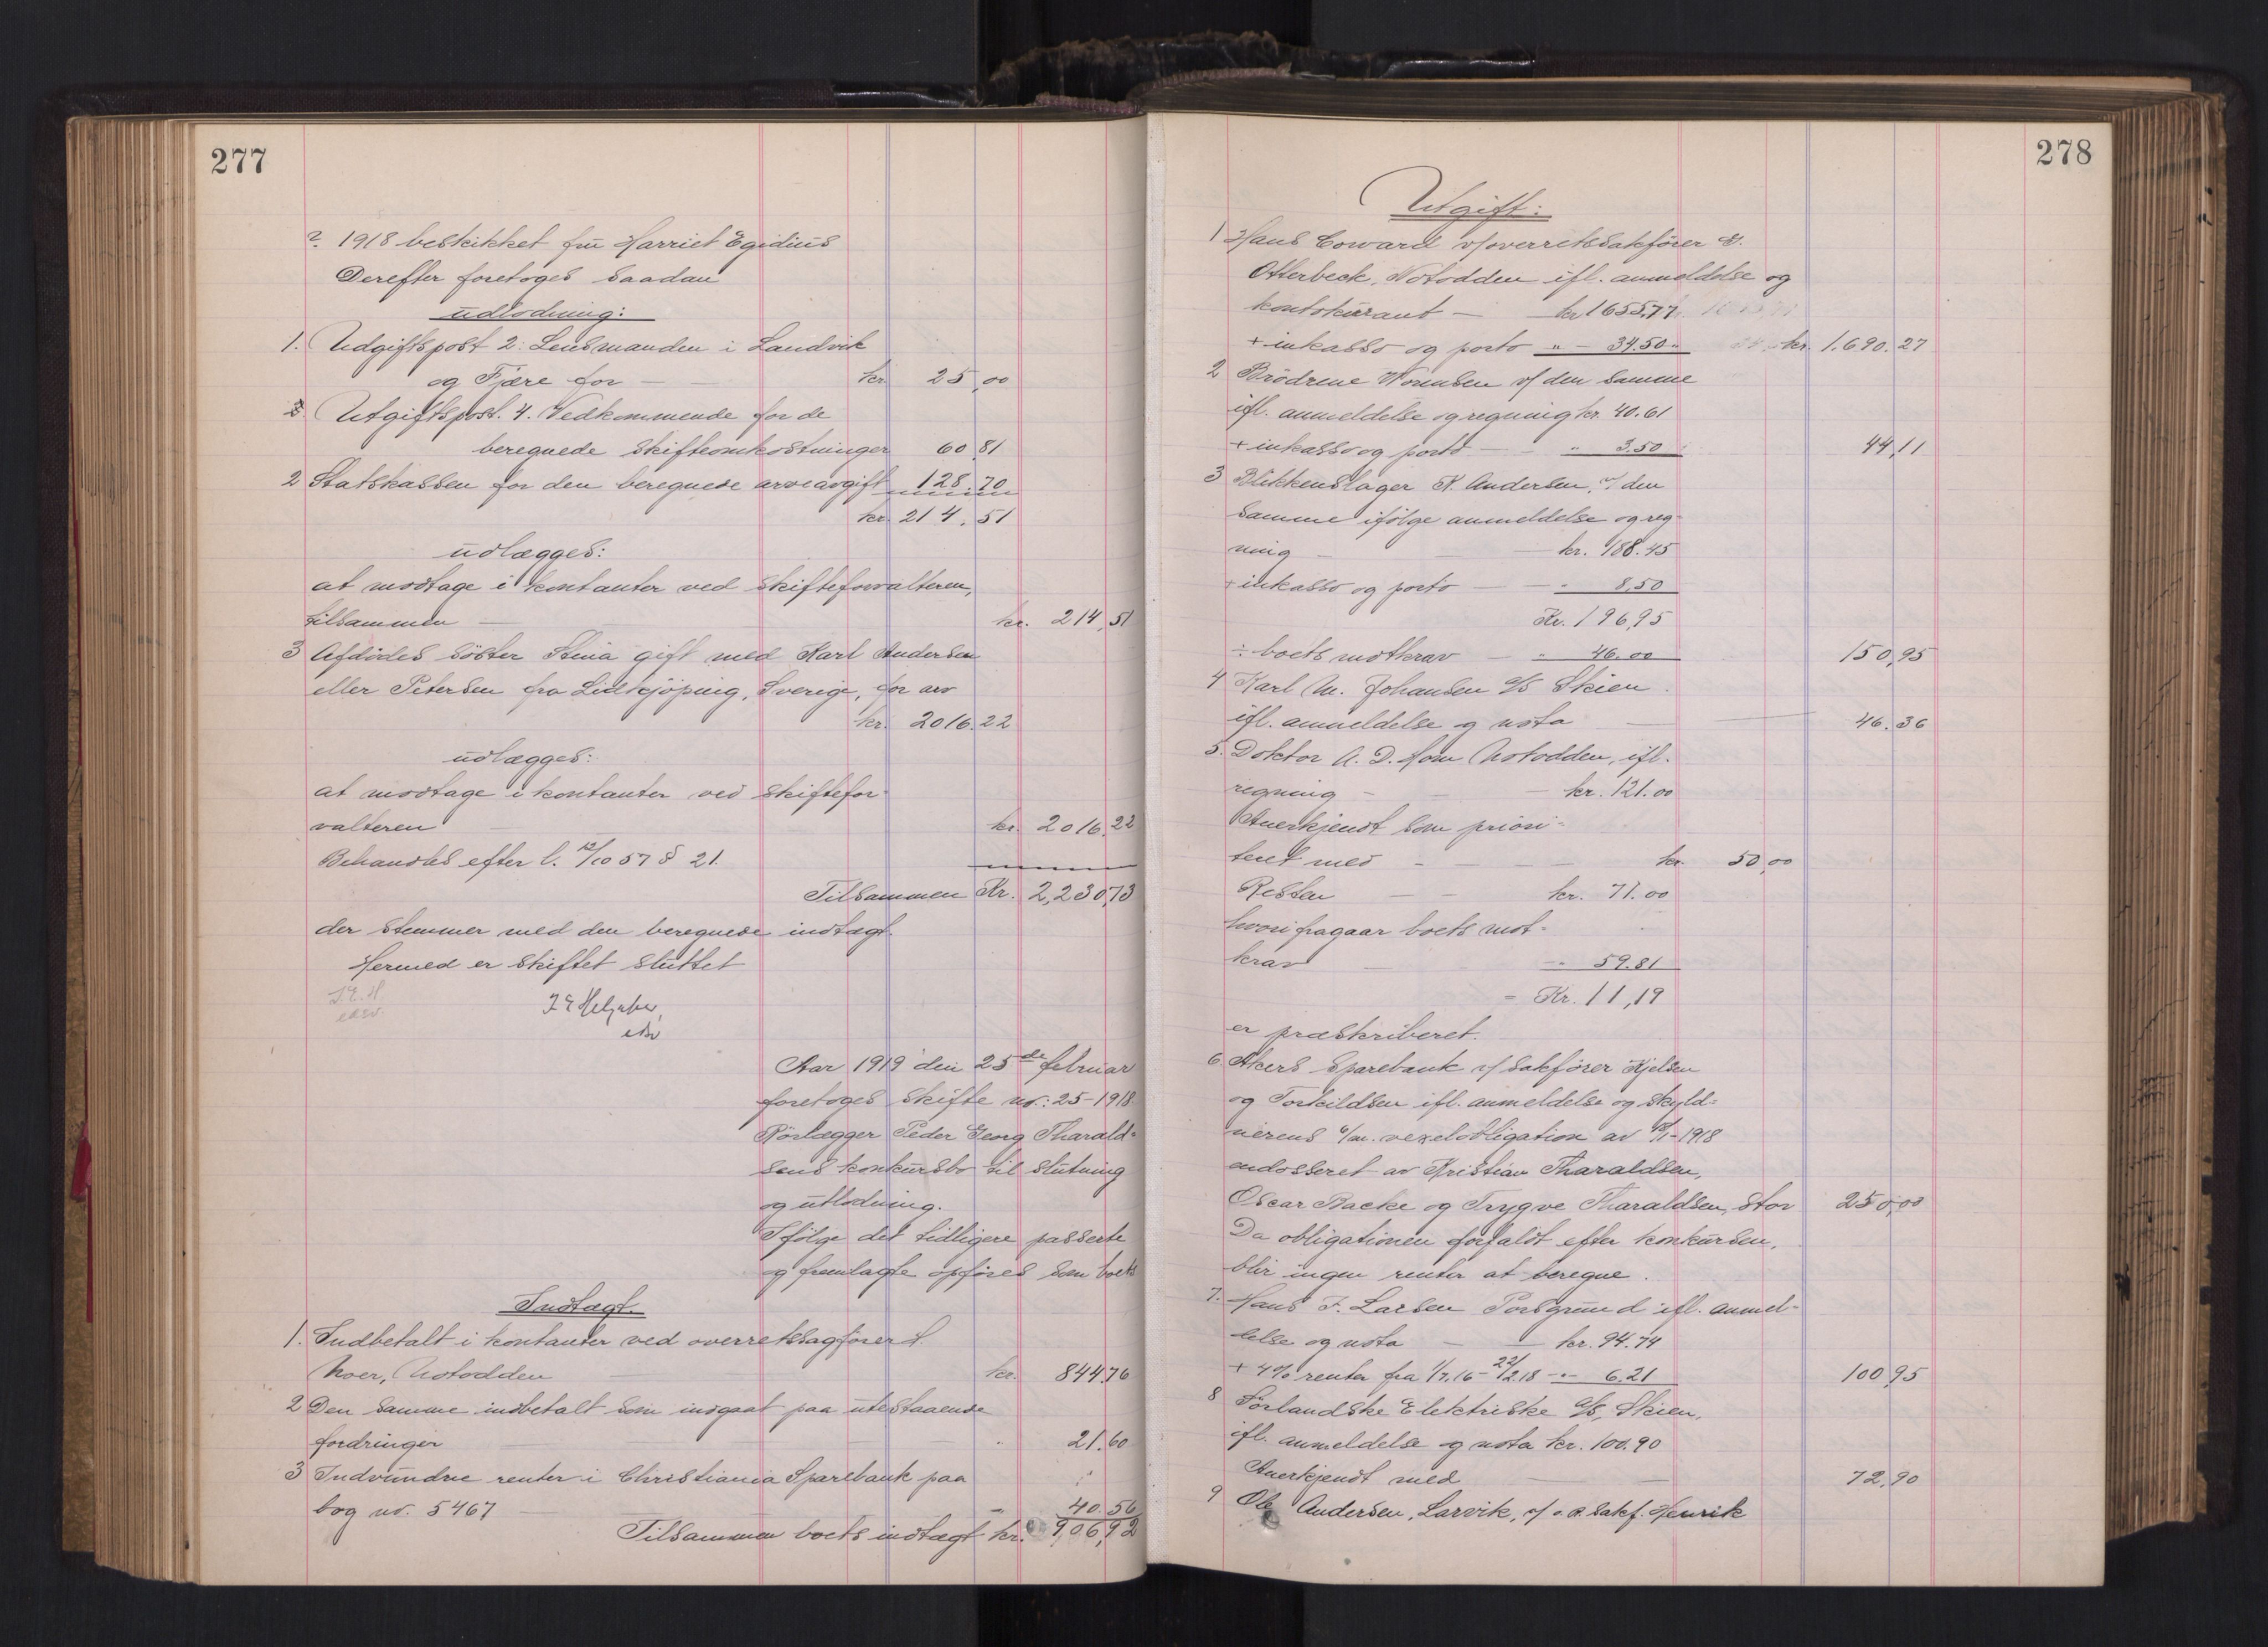 277
?. 1918 beskikket fru Harriet Egidius
Derefter foretoges saadan
udlodning:
1. Udgiftspost 2: Lensmanden i Landvik
og Fjære for — kr. 25,00
3 Utgiftspost. 4. Vedkommende for de
beregnede skifteomkostninger 60,81
2 Statskassen for den beregnede arveavgift 128.70
kr. 214.51
udlægges:
at modtage i kontanter ved skifteforvalteren,
tilsammen — kr. 214,51
3 Afdødes søster Stina gift med Karl Andersen
eller Petersen fra Lidkjøping, Sverige, for arv
kr. 2016.22
udlægges:
at modtage i kontanter ved skiftefor-
valteren — kr. 2016.22
Behandles efter l. 12/10 57 § 21.
Tilsammen Kr. 2,230,73
der stemmer med den beregnede indtægt.
Hermed er skiftet sluttet
Aar 1919 den 25de februar
foretoges skifte nr.: 25-1918
Rørlægger Peder Georg Tharald-
sens konkursbo til slutning
og utlodning.
Ifølge det tidligere passerte
og fremlagte opføres som boets
Indtægt.
1. Indbetalt i kontanter ved overretssagfører
Moer, Notodden — kr. 844.76
2 Den samme indbetalt som indgaat paa utestaaende
fordringer — 21.60
3 Indvundne renter i Christiania Sparebank paa
bog nr. 5467 — 40.56
Tilsammen boets indtægt kr. 906,92
278
Utgift:
1 Hans Coward v/overretssakfører
Otterbeck, Notodden ifl. anmeldelse og
kontokurant — kr 1655,77
+ inkasso og porto " — 34.50 " kr. 1.690.27
2 Brødrene Norensen v/ den samme
ifl. anmeldelse og regning kr. 40.61
+ inkasso og porto — " 3.50 44,11
3 Blikkenslager K. Andersen, v/ den
samme ifølge anmeldelse og reg-
ning — kr. 188.45
+ inkasso og porto — " 8,50
Kr. 196,95
÷ boets motkrav — " 46.00 150,95
4 Karl M. Johansen A/S Skien.
ifl. anmeldelse og nota — 46.36
5. Doktor A. D. Hom Notodden, ifl.
regning — kr. 121.00
Anerkjendt som priori-
teret med — kr. 50,00
Resten — kr. 71.00
hvori fragaar boets mot-
krav — " 59.81
= Kr. 11,19
er præskriberet.
6. Akers Sparebank v/ sakfører Kjelsen
og Torkildsen ifl. anmeldelse og skyld-
nerens 6/m. vexelobligation av 1918
endosseret av Kristian Tharaldsen,
Oscar Backe og Trygve Tharaldsen, stor 250,00
Da obligationen forfaldt efter konkursen,
blir ingen renter at beregne.
7. Hans J. Larsen Porsgrund ifl. anmel-
delse og nota — kr. 94.74
+ 4% renter fra 1/7.16 – 22/2.18 — " 6.21 100,95
8 Sørlandske Elektriske A/S, Skien,
ifl. anmeldelse og nota kr. 100.90
Anerkjendt med — 72,90
9 Ole Andersen, Larvik, v/ o.r.sakf. Henrik